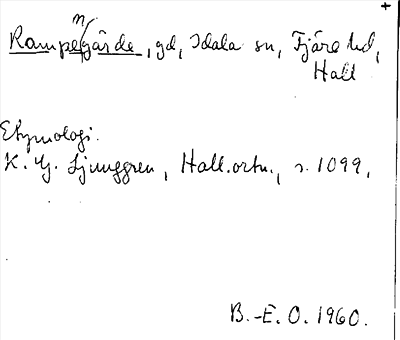 Rampengärde, gd, Idala sn, Fjäre hd,
Hall
Etymologi.
K. G. Ljunggren, Hall. ortn., s. 1099.
B.-E. O. 1960.